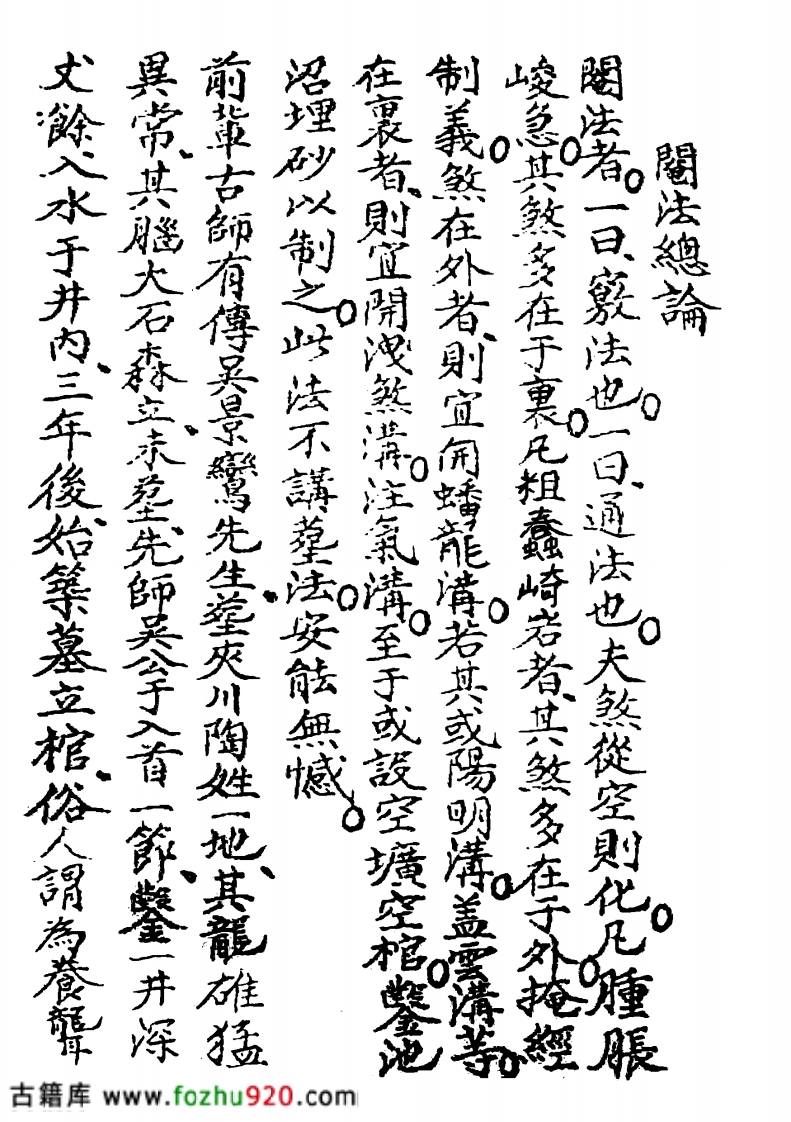 閹法總論
閹法者。一曰、竅法也。一曰、通法也。夫煞從空則化。凡腫脹
峻急。其煞多在于裏。凡粗蠢崎岩者、其煞多在于外。掩經
制義。煞在外者、則宜開蟠龍溝。若其或陽明溝。盖雲溝等。
在裏者、則宜開洩煞溝。注氣溝。至于或設空壙空棺。鑿池
沼埋砂以制之。此法不講塟法。安能無憾。
前輩古師有傳吳景鸞先生、塟夾川陶姓一地、其龍雄猛
異常、其腦大石森立、未塟、先師吳公于入首一節、鑿一井深
丈餘、入水于井內、三年後、始築墓立棺、俗人謂為養聾
古籍库 www.fozhu920.com